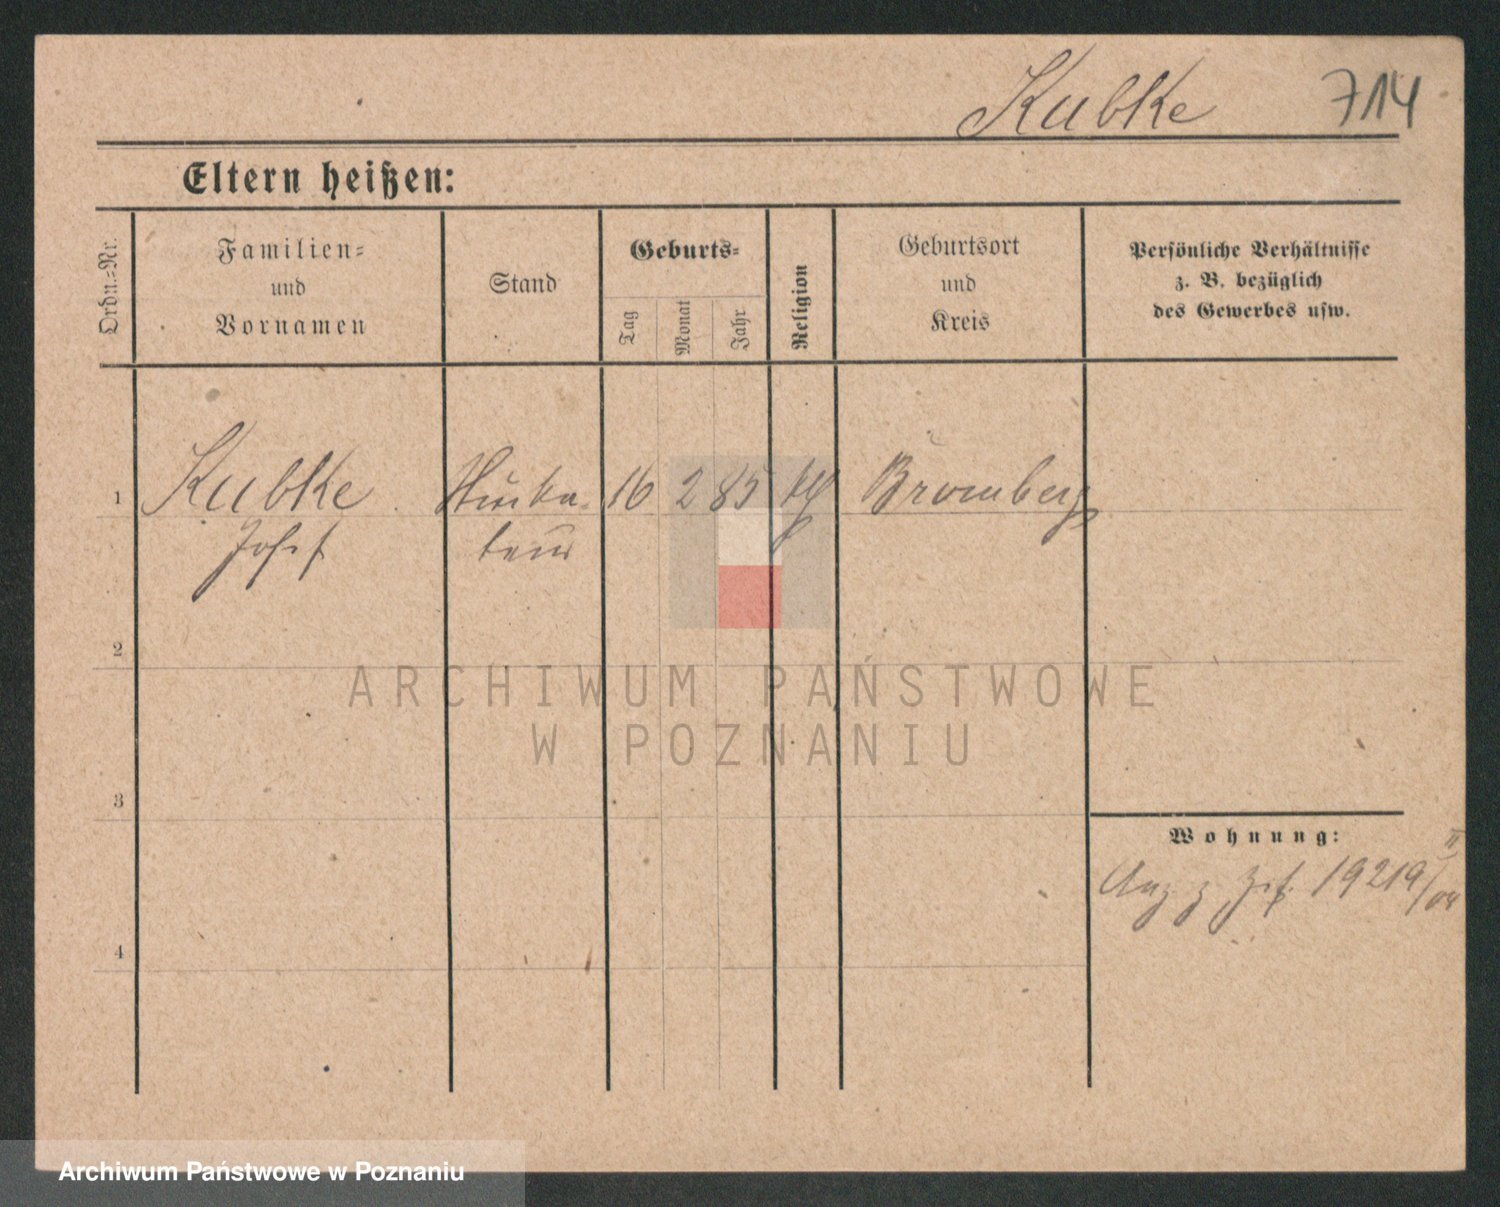 Kubke 714
Eltern heißen:
Ordn.-Nr.
Familien-
und
Vornamen
Stand
Geburts-
Tag
Monat
Jahr
Religion
Geburtsort
und
Kreis
Persönliche Verhältnisse
z. B. bezüglich
des Gewerbes usw.
1 Kubke Stucka- 16 2 85 Bromberg
Josef teur
2
ARCHIWUM PAŃSTWOWE
W POZNANIU
3
Wohnung:
19219
4
Archiwum Państwowe w Poznaniu